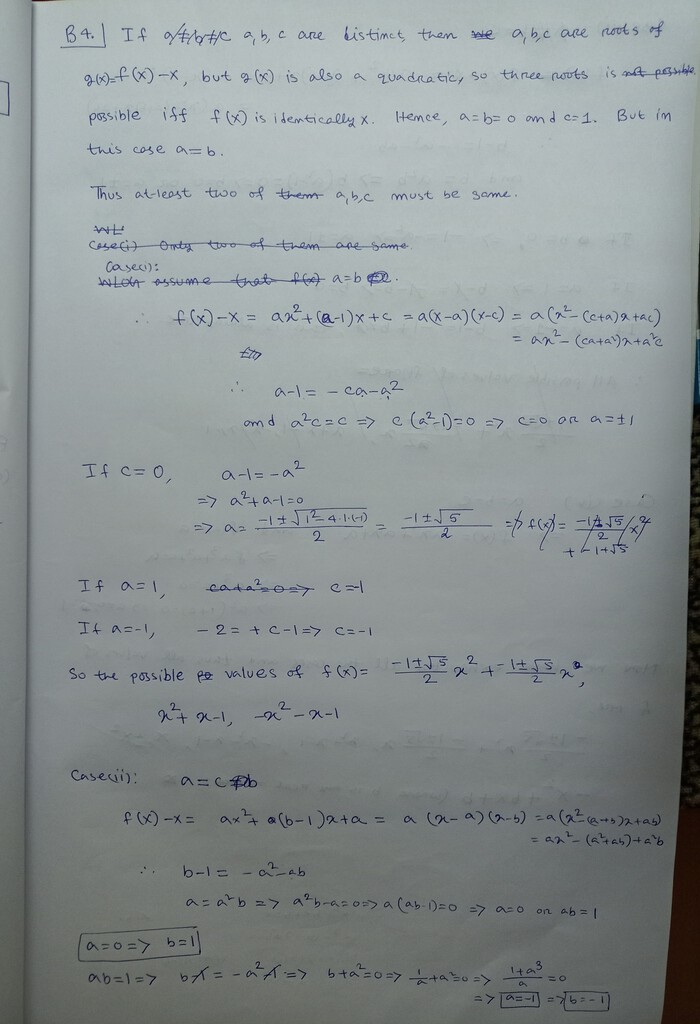 B4. If a≠b≠c a, b, c are distinct, then we a,b,c are roots of
g(x)=f(x)-x, but g(x) is also a quadratic, so three roots is not possible
possible iff f(x) is identically x. Hence, a=b=0 and c=1. But in
this case a=b.
Thus at-least two of them a,b,c must be same.
WL
Case(i) Only two of them are same.
Case(i):
WLOG assume that f(x) a=b
∴ f(x)-x = ax²+(a-1)x+c = a(x-a)(x-c) = a(x²-(c+a)x+ac)
= ax²-(ca+a²)x+a²c
∴ a-1 = -ca-a²
and a²c=c => c(a²-1)=0 => c=0 or a=±1
If c=0, a-1=-a²
=> a²+a-1=0
=> a = (-1±√(1²-4·1·(-1)))/2 = (-1±√5)/2 => f(x) = (-1±√5)/2 x²
+ -1+√5
If a=1, ca+a²=0 => c=-1
If a=-1, -2=+c-1 => c=-1
So the possible values of f(x) = (-1±√5)/2 x² + (-1±√5)/2 x,
x²+x-1, -x²-x-1
Case(ii): a=c b
f(x)-x = ax²+(b-1)x+a = a(x-a)(x-b) = a(x²-(a+b)x+ab)
= ax²-(a²+ab)+a²b
∴ b-1 = -a²-ab
a=a²b => a²b-a=0 => a(ab-1)=0 => a=0 or ab=1
a=0 => b=1
ab=1 => b-1 = -a²-1 => b+a²=0 => 1/a+a²=0 => (1+a³)/a=0
=> a=-1 => b=-1